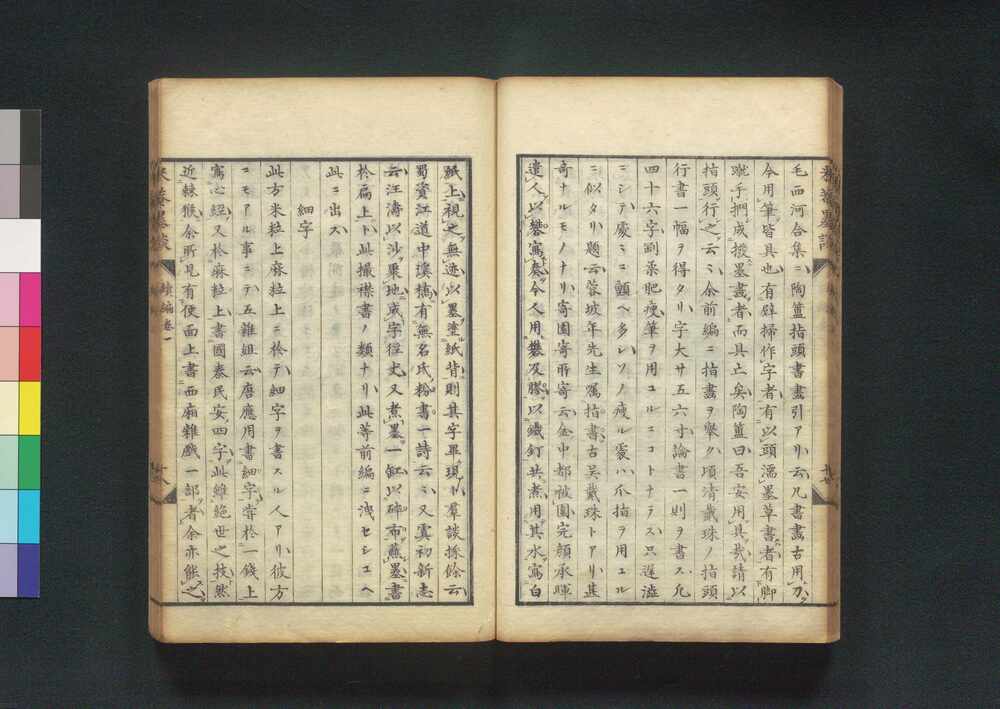 毛西河合集ニ陶簠指頭書畫引アリ云凡書畫古用刀
今用筆皆具也有辟掃作字者有以頭濡墨草書者有脚
蹴手捫成撥墨畫者而具止矣陶簠曰吾安用具哉請以
指頭行之云ミ余前編ニ指畫ヲ擧ク頃清戴珠ノ指頭
行書一幅ヲ得タリ字大サ五六寸論書一則ヲ書ス凡
四十六字副柔肥痩筆ヲ用ユルニコトナラス只遅澁
ニシテ慶ミニ顫ヘ多シソノ痩ル處ハ爪指ヲ用ユル
ニ似タリ題云蓉坡年先生属指書古吴戴珠トアリ甚
奇ナルモノナリ寄園寄所寄云金中都被圍完顔承暉
遣人以礬寫奏今人用礬及膠以鐵釘共煮用其水寫白
紙上視之無迹以墨塗紙背則其字畢現ル羣談採餘云
蜀資江道中璞橋有無名氏粉書一詩云ミ又虞初新志
云汪濤以沙栗地或字徑丈又煮墨一缸以碎布蘸墨書
於扁上ト此撮襟書ノ類ナリ此等前編ニ洩セシユヘ
此ニ出ス
細字
此方米粒上麻粒上ニ於テ細字ヲ書スル人アリ彼方
ニモアル事ニテ五雜組云唐應用書細字嘗於一錢上
寫心經又於麻粒上書國泰民安四字此雖絶世之技然
近棘猴余所見有便面上書西廂雜戲一部者余亦能之
續編卷一